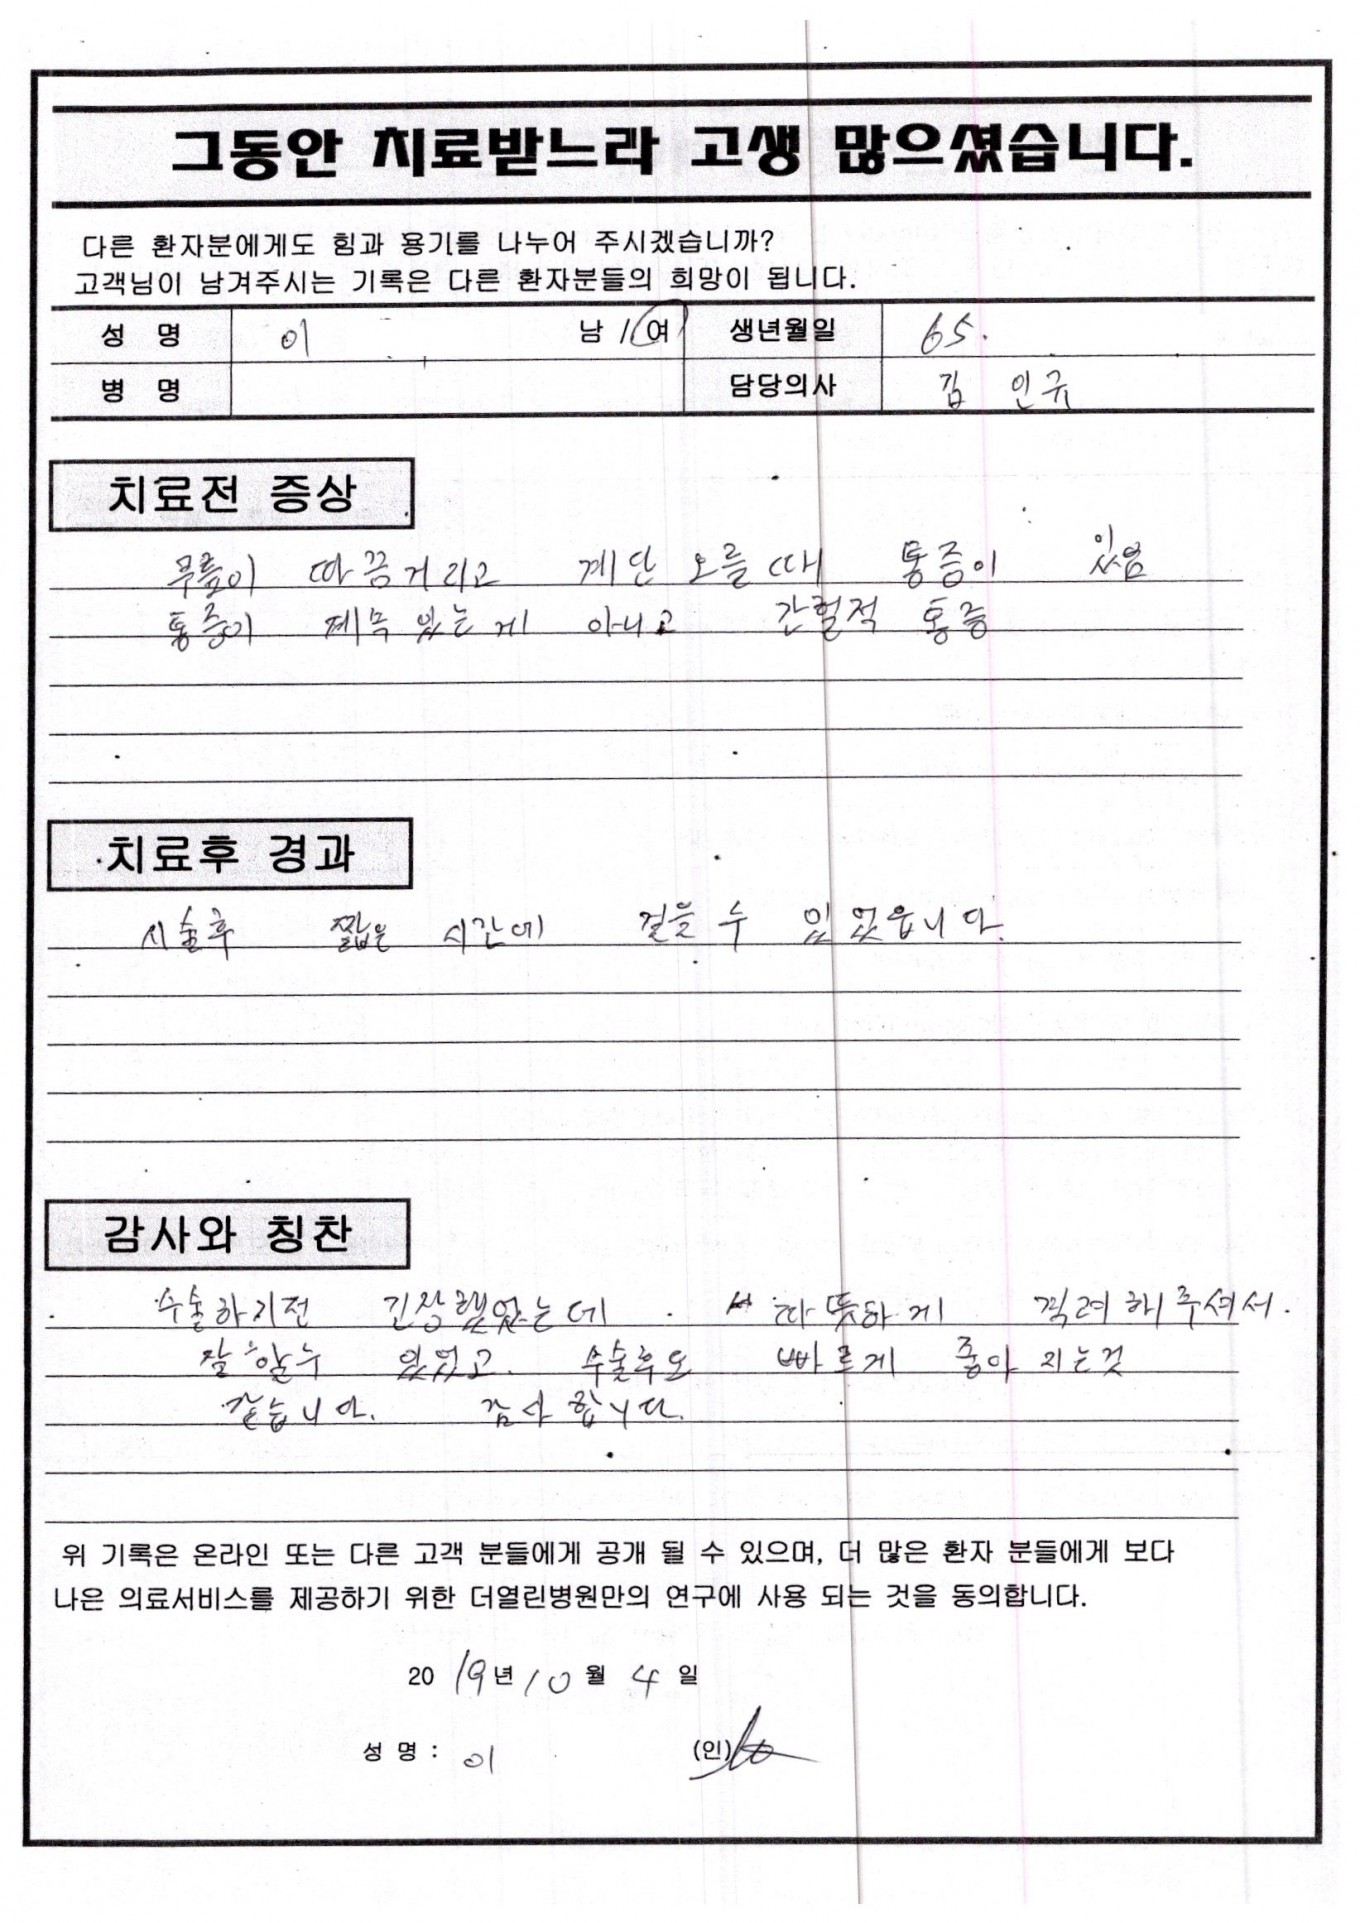 그동안 치료받느라 고생 많으셨습니다.
다른 환자분에게도 힘과 용기를 나누어 주시겠습니까?
고객님이 남겨주시는 기록은 다른 환자분들의 희망이 됩니다.
성 명 이 남 / 여 생년월일 65.
병 명 담당의사 김 인규
치료전 증상
무릎이 따끔거리고 계단 오를때 통증이 있음
통증이 계속 있는게 아니고 간헐적 통증
치료후 경과
시술후 짧은 시간에 걸을 수 있었읍니다.
감사와 칭찬
수술하기전 긴장했었는데 따뜻하게 격려해주셔서.
잘 할수 있었고. 수술후도 빠르게 좋아 지는것
같습니다. 감사합니다.
위 기록은 온라인 또는 다른 고객 분들에게 공개 될 수 있으며, 더 많은 환자 분들에게 보다
나은 의료서비스를 제공하기 위한 더열린병원만의 연구에 사용 되는 것을 동의합니다.
2019년 10월 4일
성 명 : 이 (인)